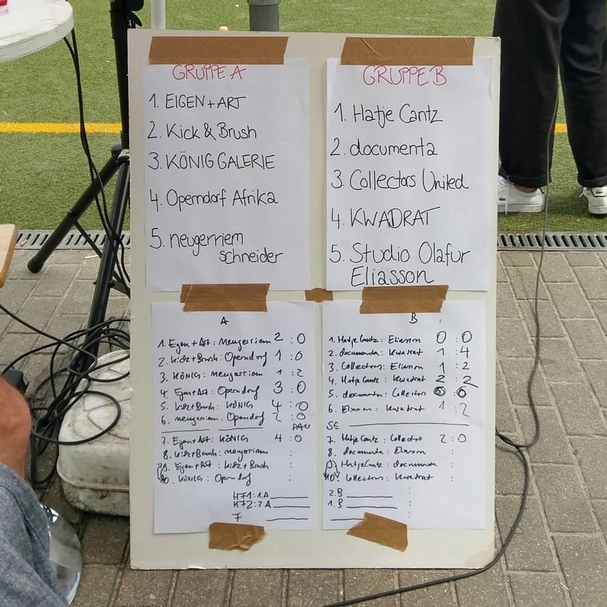 GRUPPE A
1. EIGEN+ART
2. Kick & Brush
3. KÖNIG GALERIE
4. Operndorf Afrika
5. neugerriem
schneider
GRUPPE B
1. Hatje Cantz
2. documenta
3. Collectors United
4. KWADRAT
5. Studio Olafur
Eliasson
A
1. Eigen+Art : 2 : 0
2. : Operndorf 1 : 0
3. KÖNIG : 1 : 2
4. Eigen+Art : Operndorf 3 : 0
5. : KÖNIG 4 : 0
6. : Operndorf 2 : 0
7. Eigen+Art : KÖNIG 4 : 0
8. :
9. Eigen+Art : :
10. KÖNIG : Operndorf :
HF1: 1.A
HF2: 2.A
B
1. Hatje Cantz : Eliasson 0 : 0
2. documenta : Kwadrat 1 : 4
3. Collectors : Eliasson 1 : 2
4. Hatje Cantz : Kwadrat 2 : 2
5. documenta : Collectors
6. Eliasson : Kwadrat 1 : 2
7. Hatje Cantz : Collectors 2 : 0
8. documenta : Eliasson :
9. Hatje Cantz : documenta :
10. Collectors : Kwadrat :
2.B
1.B